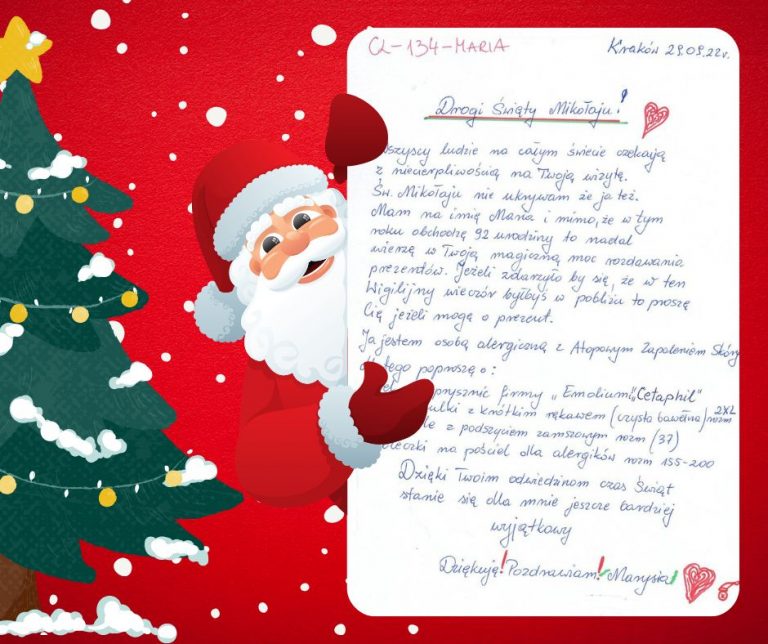 CL-134-MARIA
Kraków 29.09.22r.
Drogi Święty Mikołaju!
szyscy ludzie na całym świecie czekają
z niecierpliwością na Twoją wizytę.
Św. Mikołaju nie ukrywam że ja też.
Mam na imię Maria i mimo, że w tym
roku obchodzę 92 urodziny to nadal
wierzę w Twoją magiczną moc rozdawania
prezentów. Jeżeli zdarzyło by się, że w ten
Wigilijny wieczór byłbyś w pobliżu to proszę
Cię jeżeli mogę o prezent.
Ja jestem osobą alergiczną z Atopowym Zapaleniem Skóry
tego poproszę o:
prysznic firmy "Emolium", "Cetaphil"
ulki z krótkim rękawem (czysta bawełna) rozm 2XL
le z podszyciem zamszowym rozm (37)
eczki na pościel dla alergików rozm 155-200
Dzięki Twoim odwiedzinom czas Świąt
stanie się dla mnie jeszcze bardziej
wyjątkowy
Dziękuję! Pozdrawiam! Marysia